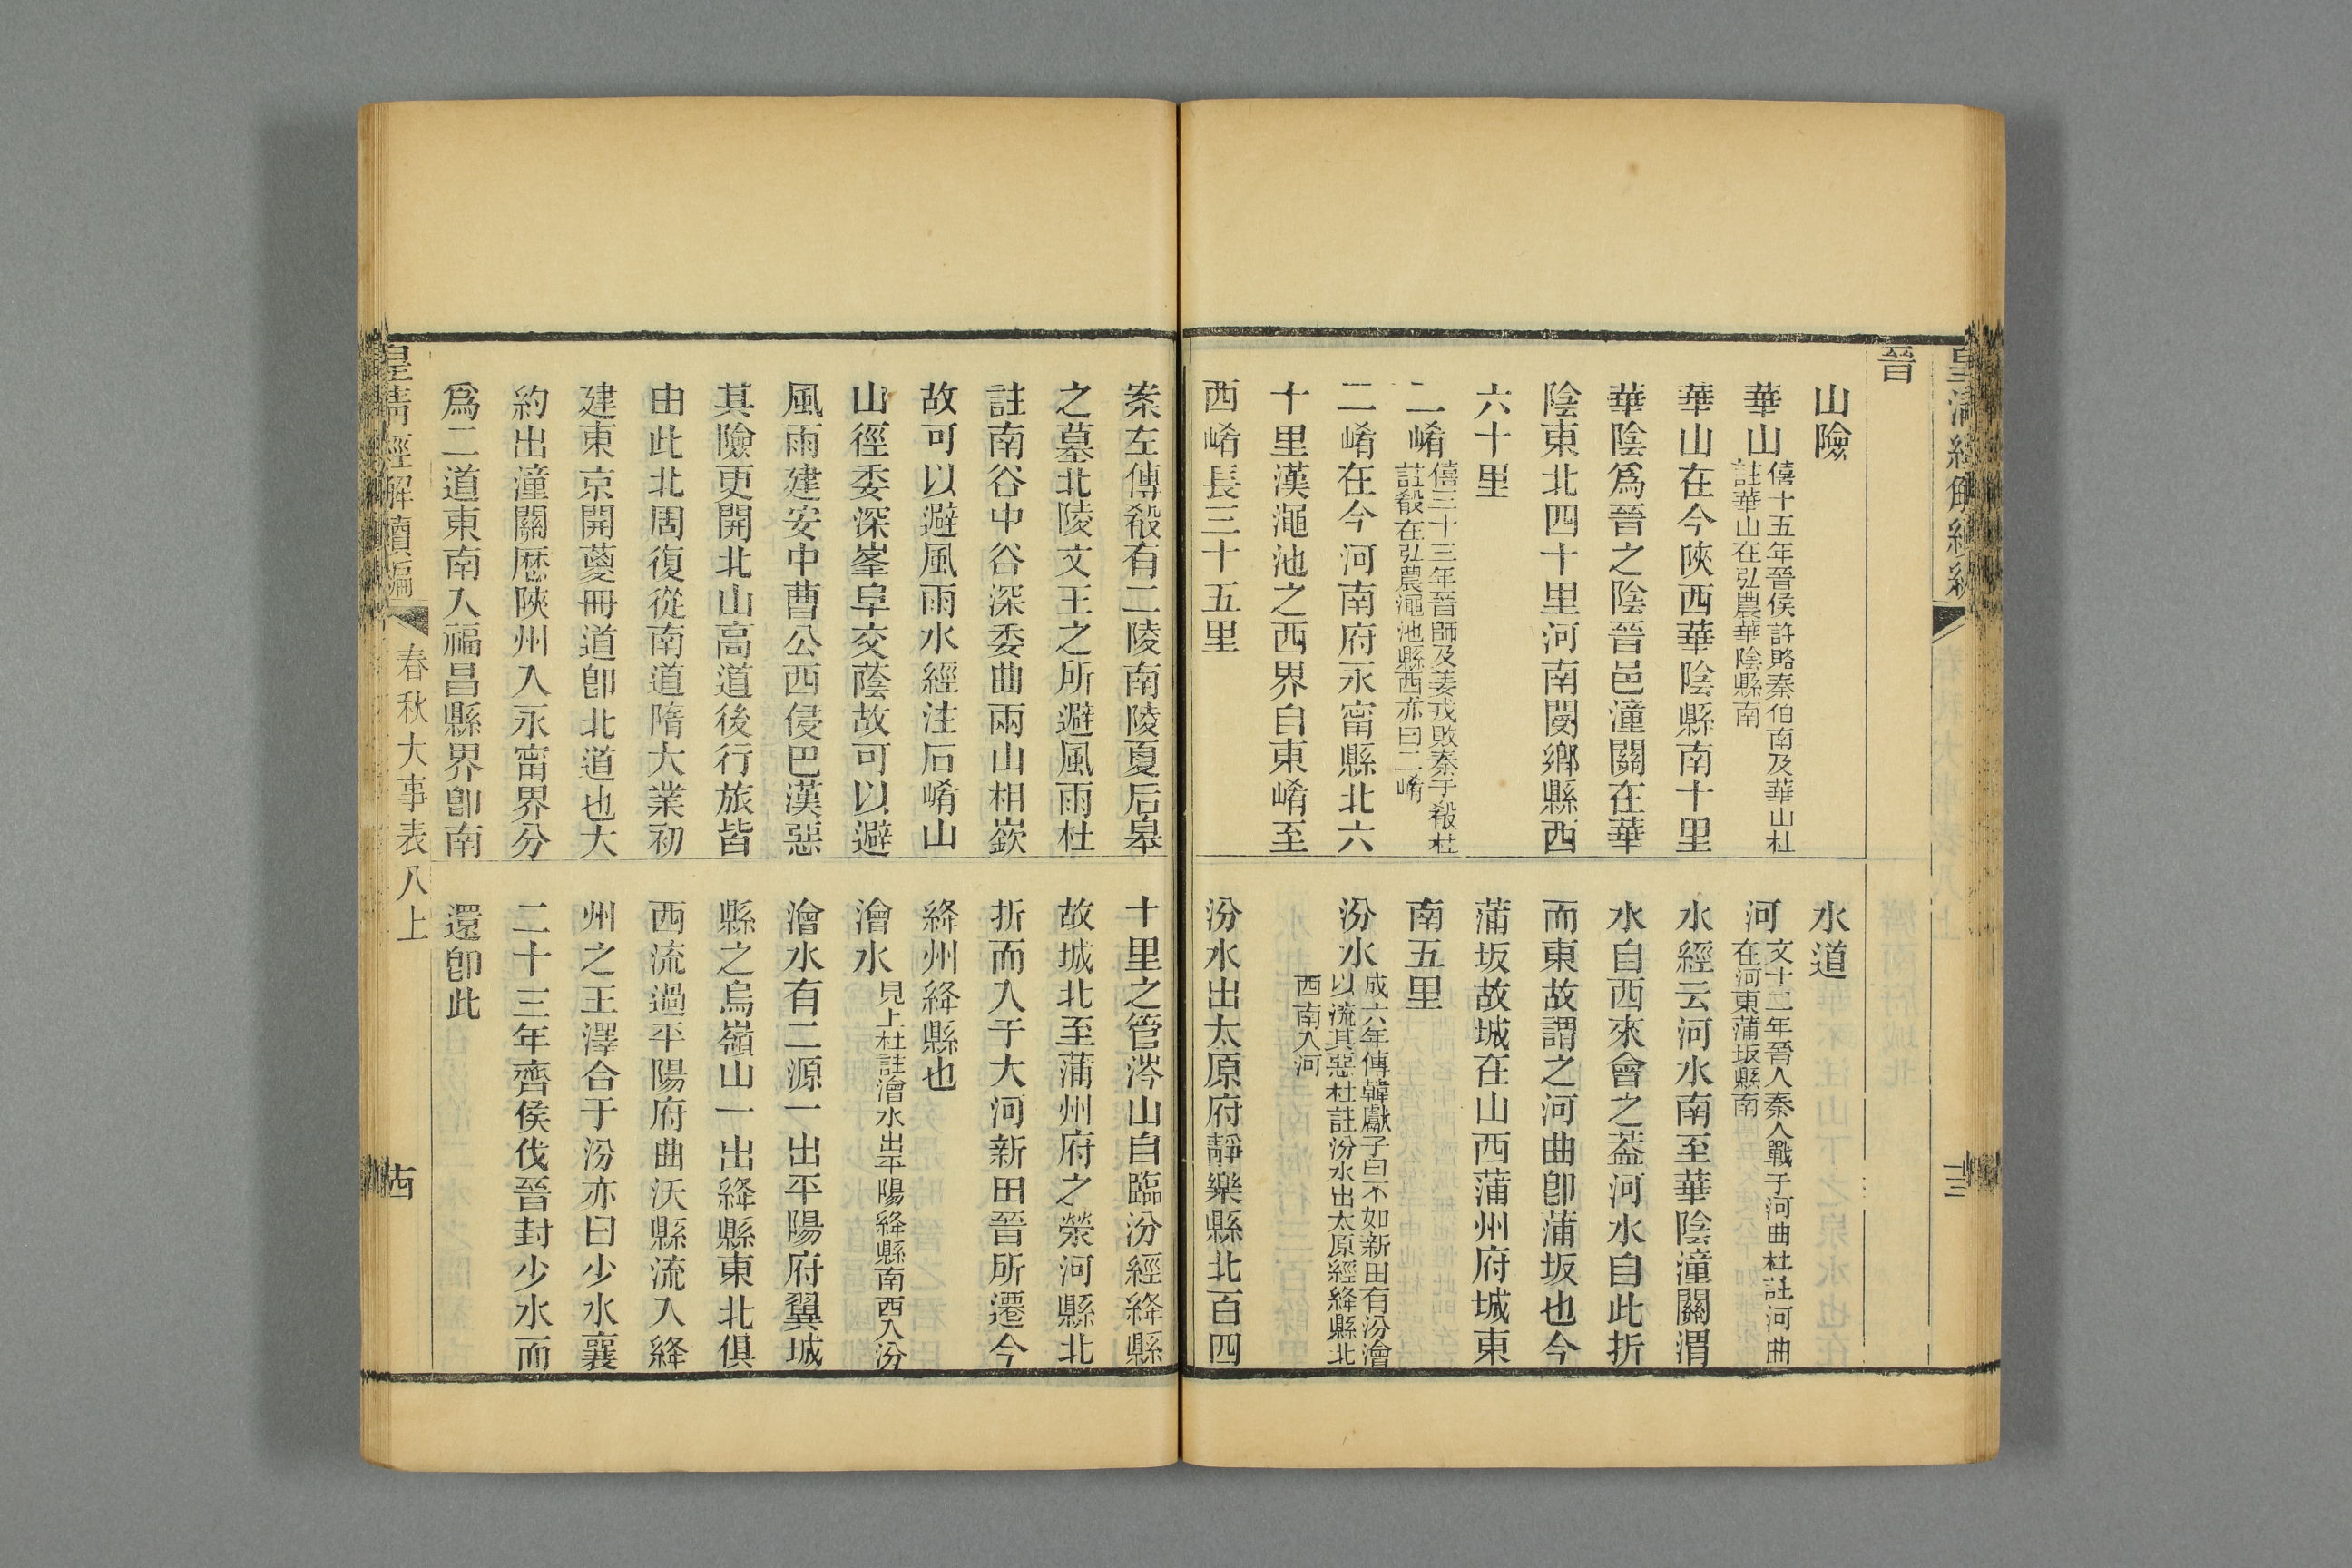 晉
山險
華山
僖十五年晉侯許賂秦伯南及華山杜
註華山在弘農華陰縣南
華山在今陝西華陰縣南十里
華陰爲晉之陰晉邑潼關在華
陰東北四十里河南閿鄉縣西
六十里
二崤
僖三十三年晉師及姜戎敗秦于殽杜
註殽在弘農澠池縣西亦曰二崤
二崤在今河南府永寗縣北六
十里漢澠池之西界自東崤至
西崤長三十五里
水道
河
文十二年晉人秦人戰于河曲杜註河曲
在河東蒲坂縣南
水經云河水南至華陰潼關渭
水自西來會之葢河水自此折
而東故謂之河曲卽蒲坂也今
蒲坂故城在山西蒲州府城東
南五里
汾水
成六年傳韓獻子曰不如新田有汾澮
以流其惡杜註汾水出太原經絳縣北
西南入河
汾水出太原府靜樂縣北百四
案左傳殽有二陵南陵夏后皋
之墓北陵文王之所避風雨杜
註南谷中谷深委曲兩山相嶔
故可以避風雨水經注石崤山
山徑委深峯阜交蔭故可以避
風雨建安中曹公西侵巴漢惡
其險更開北山高道後行旅皆
由此北周復從南道隋大業初
建東京開葼冊道卽北道也大
約出潼關歷陝州入永寗界分
爲二道東南入福昌縣界卽南
十里之管涔山自臨汾經絳縣
故城北至蒲州府之滎河縣北
折而入于大河新田晉所遷今
絳州絳縣也
澮水
見上杜註澮水出平陽絳縣南西入汾
澮水有二源一出平陽府翼城
縣之烏嶺山一出絳縣東北俱
西流過平陽府曲沃縣流入絳
州之王澤合于汾亦曰少水襄
二十三年齊侯伐晉封少水而
還卽此
皇清經解續編
春秋大事表八上
古